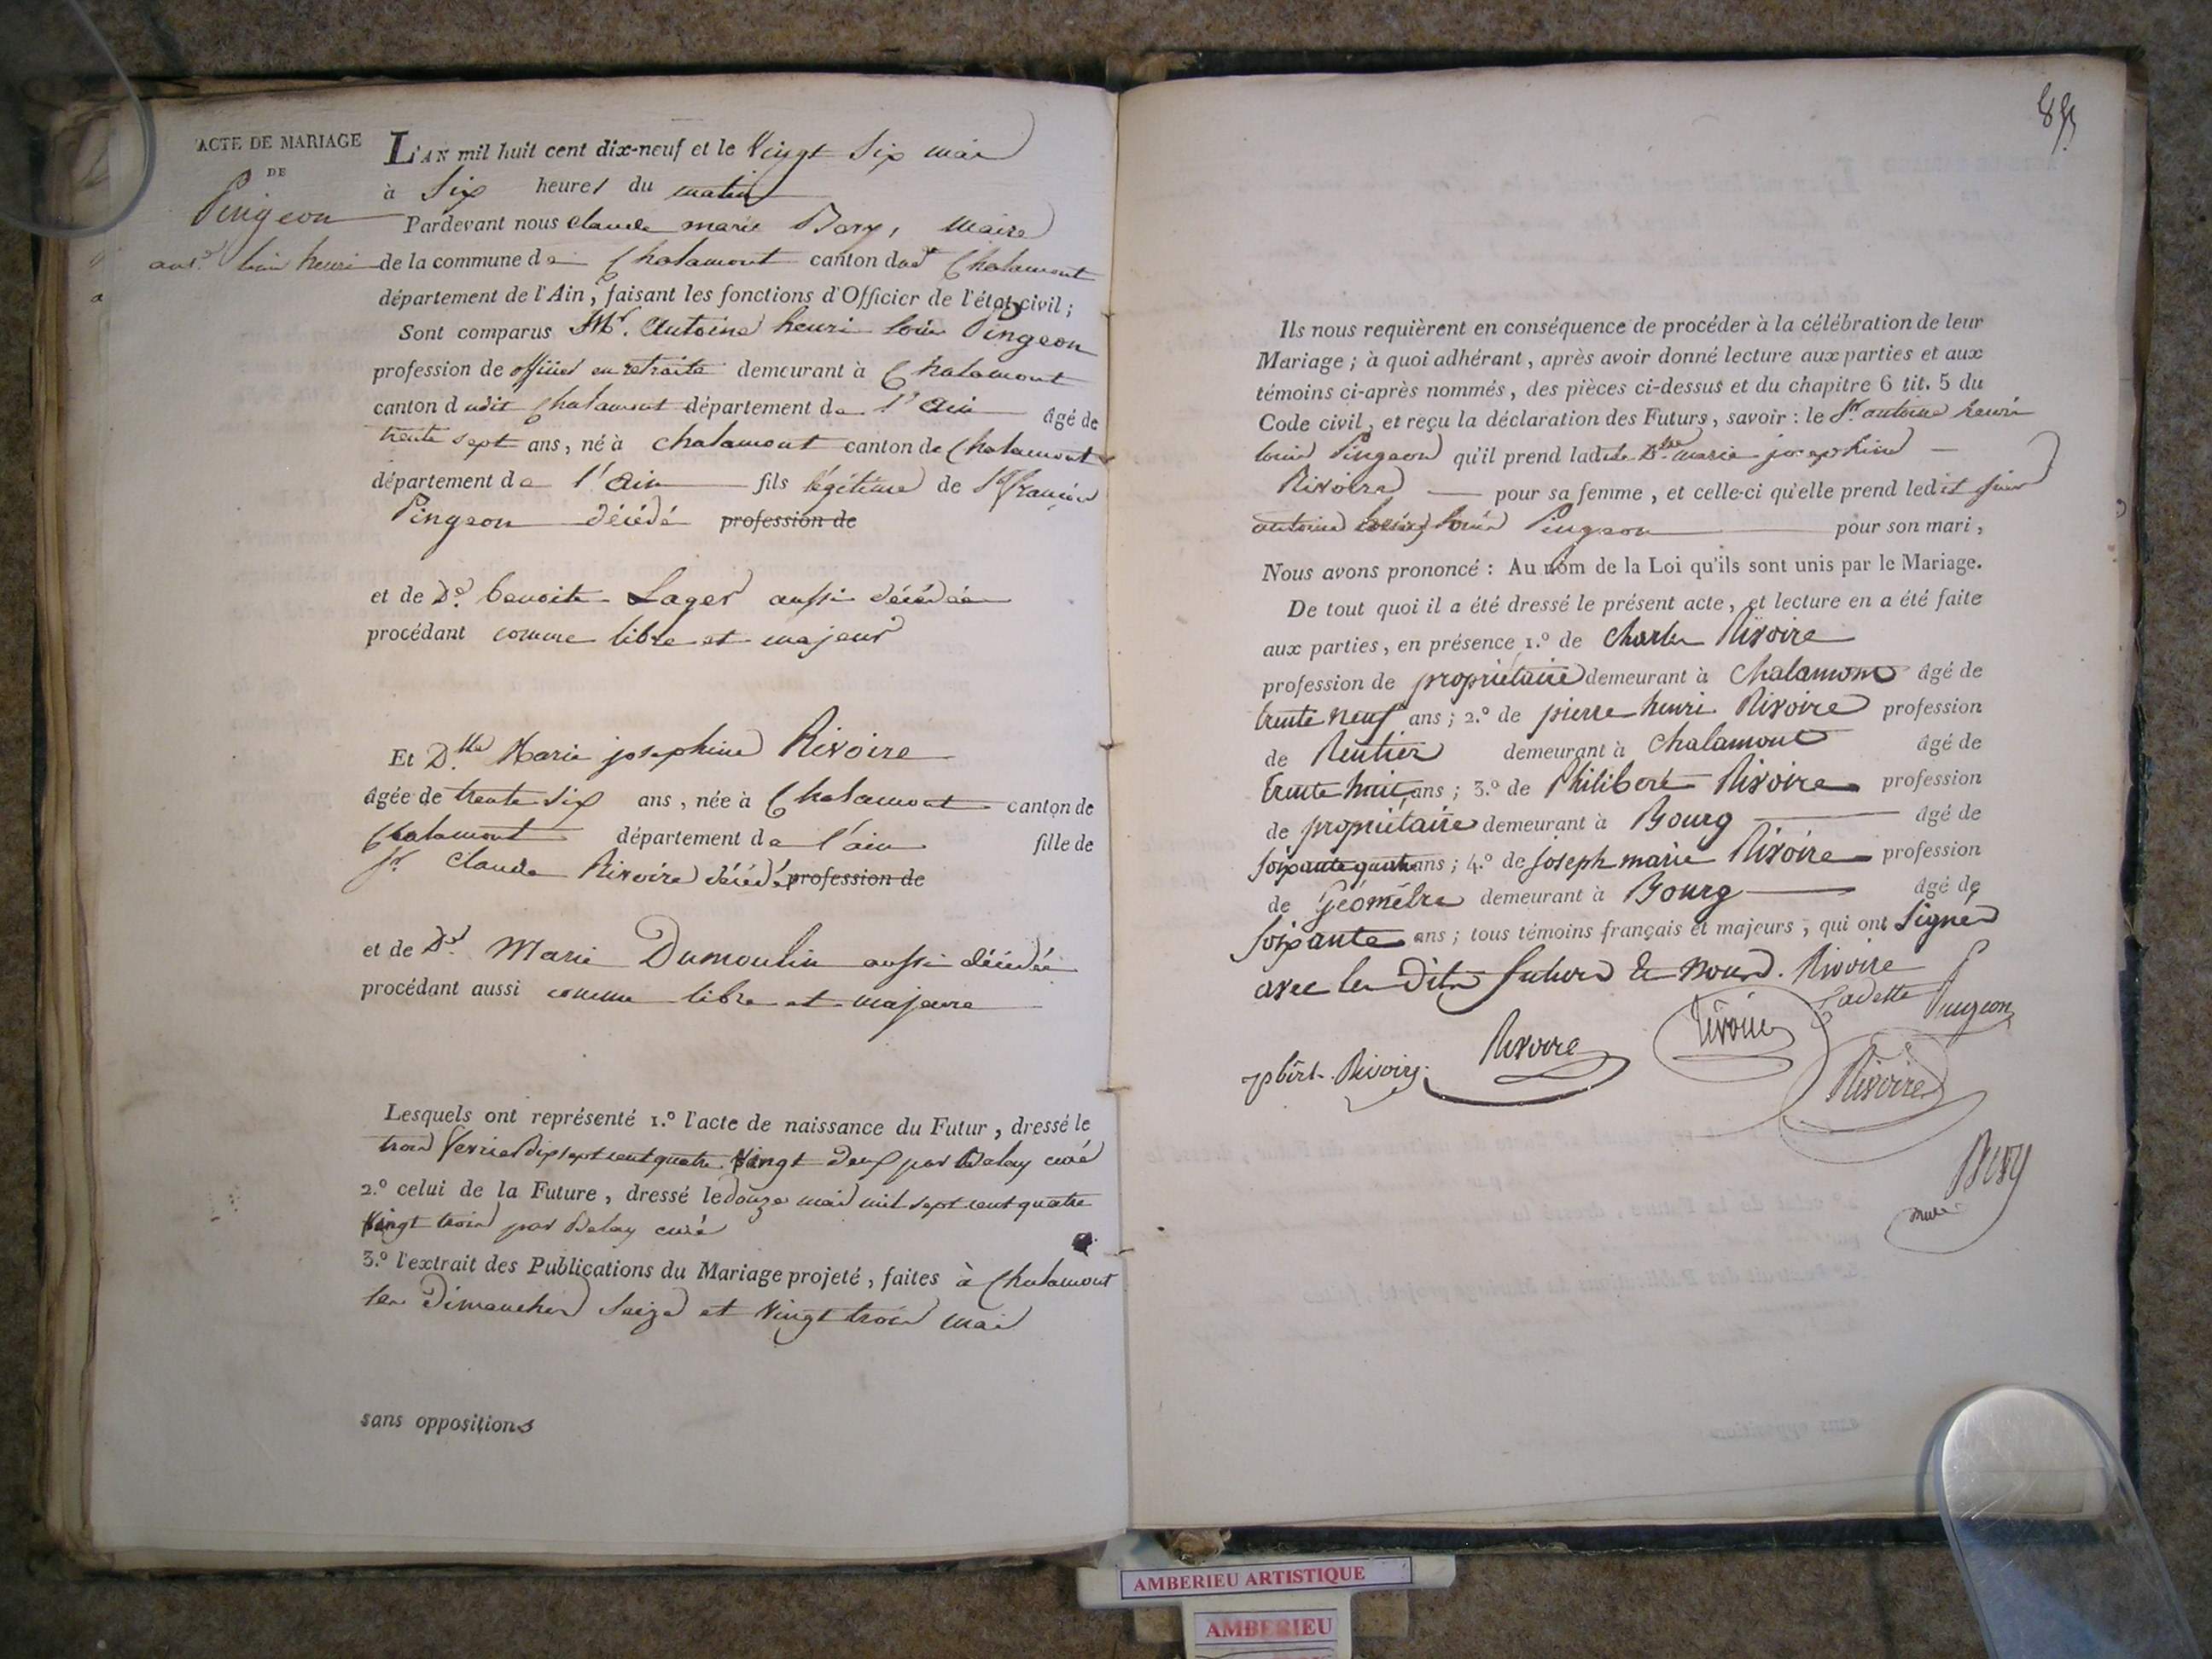 ACTE DE MARIAGE
DE
Pingeon
ant.e louis henri
L'AN mil huit cent dix-neuf et le Vingt Six mai
à Six heures du matin
Pardevant nous Claude marie Bory, Maire
de la commune de Chalamont canton dud.t Chalamont
département de l'Ain, faisant les fonctions d'Officier de l'état civil;
Sont comparus Mr. Antoine henri louis Pingeon
profession de officier en retraite demeurant à Chalamont
canton dudit Chalamont département de l'Ain âgé de
trente sept ans, né à Chalamont canton de Chalamont
département de l'Ain fils légitime de Sr françois
Pingeon décédé profession de
et de De. benoite Lager aussi décédée
procédant comme libre et majeur
Et D.lle Marie josephine Rivoire
âgée de trente Six ans, née à Chalamont canton de
Chalamont département de l'ain fille de
Sr. Claude Rivoire décédé profession de
et de De. Marie Dumoulin aussi décédée
procédant aussi comme libre et majeure
Lesquels ont représenté 1.º l'acte de naissance du Futur, dressé le
trois fevrier dix sept cent quatre vingt deux par Delay curé
2.º celui de la Future, dressé le douze mai mil sept cent quatre
vingt trois par Delay curé
3.º l'extrait des Publications du Mariage projeté, faites à Chalamont
les Dimanches Seize et Vingt trois mai
sans oppositions
85
Ils nous requièrent en conséquence de procéder à la célébration de leur
Mariage; à quoi adhérant, après avoir donné lecture aux parties et aux
témoins ci-après nommés, des pièces ci-dessus et du chapitre 6 tit. 5 du
Code civil, et reçu la déclaration des Futurs, savoir: le Sr. antoine henri
louis Pingeon qu'il prend ladite Dlle. marie josephine
Rivoire pour sa femme, et celle-ci qu'elle prend ledit sieur
antoine henry louis Pingeon pour son mari,
Nous avons prononcé: Au nom de la Loi qu'ils sont unis par le Mariage.
De tout quoi il a été dressé le présent acte, et lecture en a été faite
aux parties, en présence 1.º de Charles Rivoire
profession de propriétaire demeurant à Chalamont âgé de
trente neuf ans; 2.º de pierre henri Rivoire profession
de Rentier demeurant à Chalamont âgé de
trente huit ans; 3.º de Philibert Rivoire profession
de propriétaire demeurant à Bourg âgé de
soixante quatre ans; 4.º de Joseph marie Rivoire profession
de Géomêtre demeurant à Bourg âgé de
soixante ans; tous témoins français et majeurs, qui ont signés
avec les Dits futurs & nous. Rivoire
Cadette Pingeon
phbert. Rivoire. Rivoire Rivoire
Rivoire
Bory
maire
AMBERIEU ARTISTIQUE
AMBERIEU